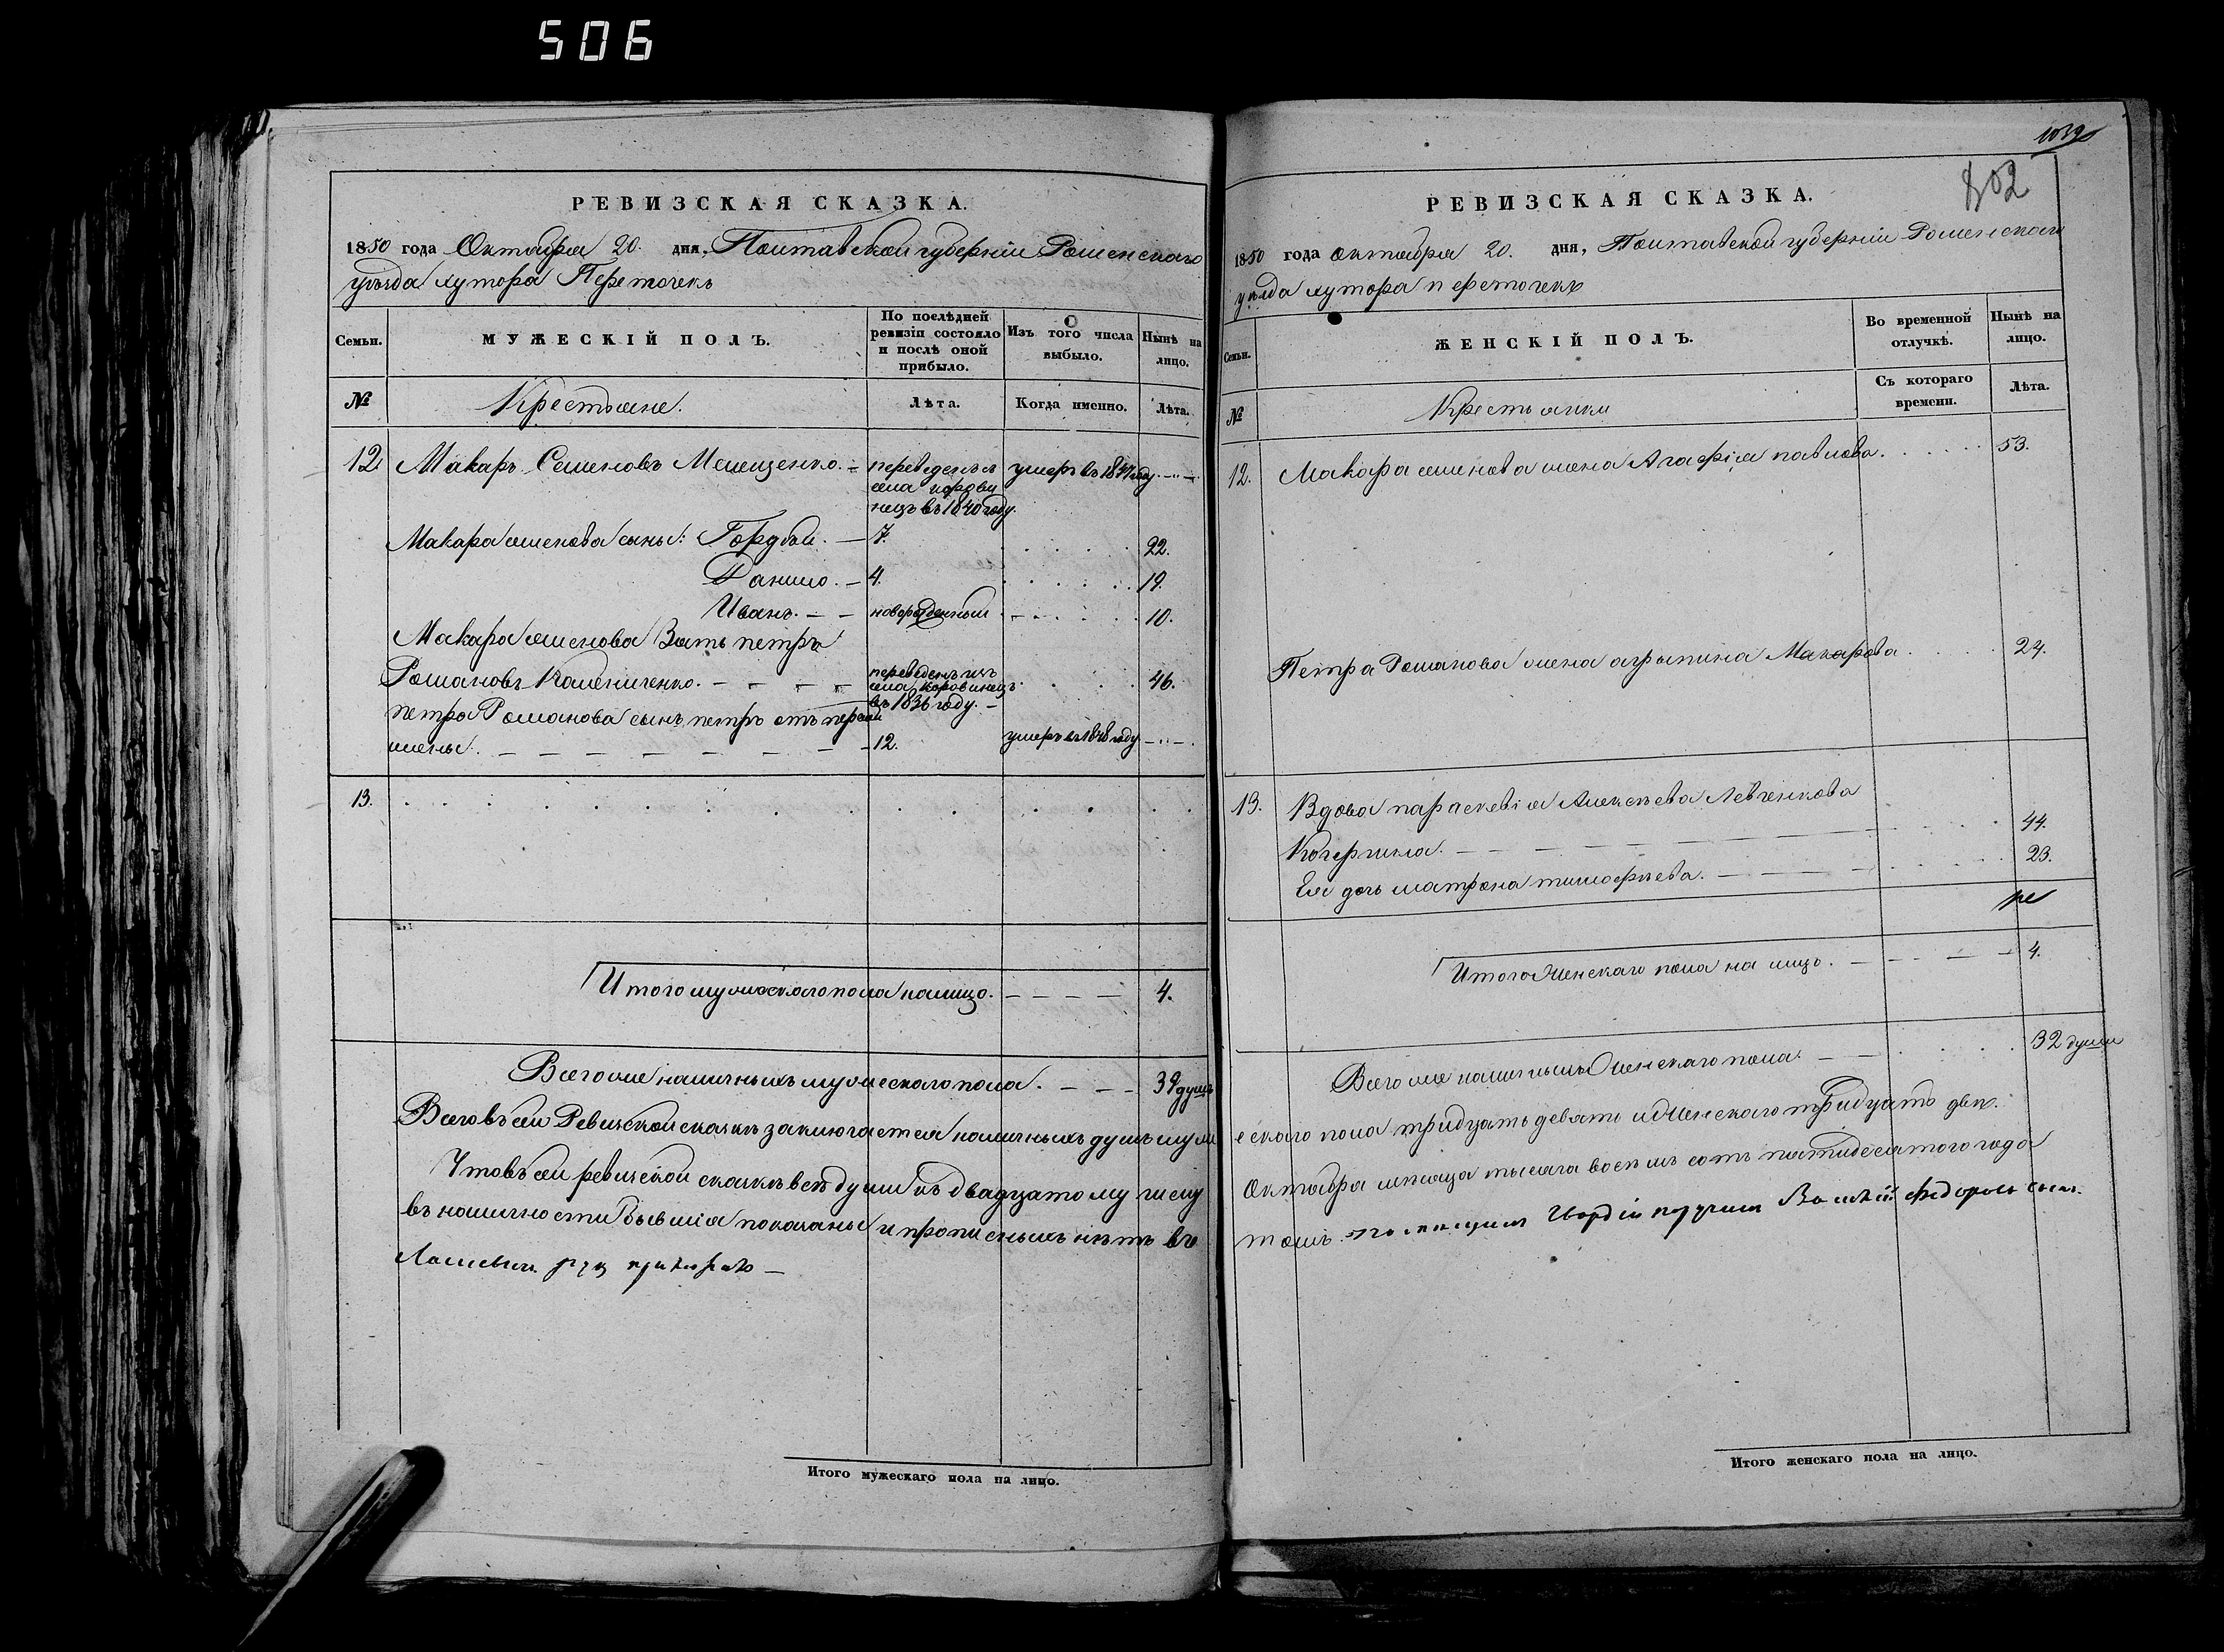 506
1039
802
РЕВИЗСКАЯ СКАЗКА.
1850 года Октября 20. дня, Полтавской губерніи Роменскаго
уѣзда хутора Переточекъ
Семьи.
МУЖЕСКІЙ ПОЛЪ.
По послѣдней ревизіи состояло и послѣ оной прибыло.
Изъ того числа выбыло.
Нынѣ на лицо.
№
Крестьяне.
Лѣта.
Когда именно.
Лѣта.
12. Макаръ Семеновъ — переведенъ села Корови умеръ въ 1847 году
нецъ въ 1840 году.
Макара Семенова сыны: Гордѣй. — 7. 22.
Данило. — 4. 19.
Иванъ. — — новорожденный 10.
Макара Семенова Зять петръ
Романовъ — — — — переведенъ изъ села Коровинецъ въ 1836 году. — 46.
петра Романова сынъ петръ отъ первой
жены. — — — — — — 12. умеръ въ 1848 году
13.
Итого мужескаго пола налицо. — — — — 4.
Всего же наличныхъ мужескаго пола. — — — 39 душъ
Всего въ сей Ревизской сказкѣ заключается наличныхъ душъ муж
Что въ сей ревизской сказкѣ всѣ души къ двадцатому числу
въ наличности бывшія показаны и прописныхъ нѣтъ въ
Итого мужескаго пола на лицо.
РЕВИЗСКАЯ СКАЗКА.
1850 года октября 20. дня, Полтавской губерніи Роменскаго
уѣзда хутора переточекъ
Семьи.
ЖЕНСКІЙ ПОЛЪ.
Во временной отлучкѣ.
Нынѣ на лицо.
№
Крестьянки
Съ котораго времени.
Лѣта.
12. Макара семенова жена Агафія павлова. 53.
Петра Романова жена агрыпина Макарова. 24.
13. Вдова параскевія Алексѣева Левченкова
44.
Ея дочь матрона тимофѣева. — — — — 23.
Итого женскаго пола на лицо. — — — — 4.
Всего же наличныхъ женскаго пола. — — 32 души
ескаго пола тридцать девять и женскаго тридцать двѣ.
Октября мѣсяца тысяча восемь сотъ пятидесятого года
томъ
Итого женскаго пола на лицо.